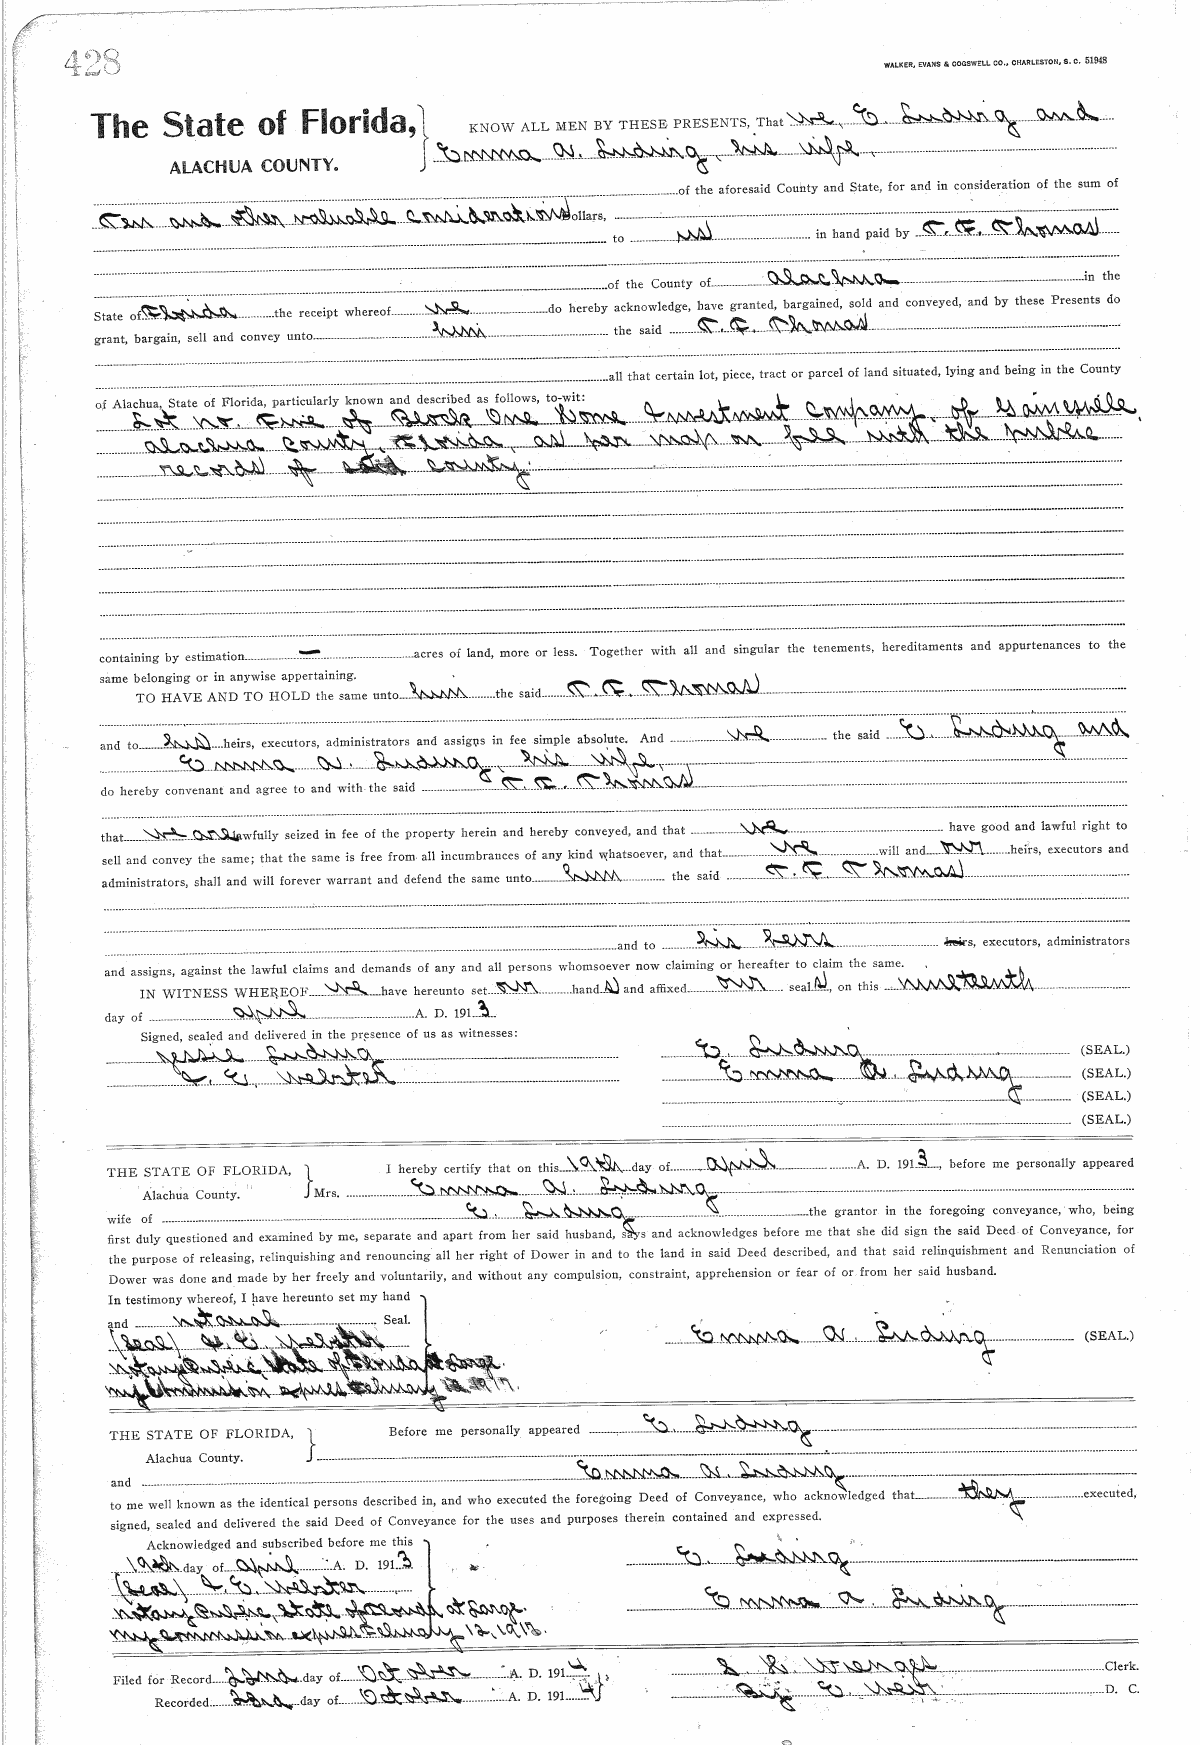 428
WALKER, EVANS & COGSWELL CO., CHARLESTON, S. C. 51948
The State of Florida, KNOW ALL MEN BY THESE PRESENTS, That We, E. Ludwig and
ALACHUA COUNTY. Emma A. Ludwig, his wife,
of the aforesaid County and State, for and in consideration of the sum of
Ten and other valuable considerations Dollars,
to us in hand paid by T. F. Thomas
of the County of Alachua in the
State of Florida the receipt whereof we do hereby acknowledge, have granted, bargained, sold and conveyed, and by these Presents do
grant, bargain, sell and convey unto him the said T. F. Thomas
all that certain lot, piece, tract or parcel of land situated, lying and being in the County
of Alachua, State of Florida, particularly known and described as follows, to-wit:
Lot no. Five of Block One Home Investment Company, of Gainesville,
Alachua County, Florida, as per map on file with the public
records of said county.
containing by estimation — acres of land, more or less. Together with all and singular the tenements, hereditaments and appurtenances to the
same belonging or in anywise appertaining.
TO HAVE AND TO HOLD the same unto him the said T. F. Thomas
and to his heirs, executors, administrators and assigns in fee simple absolute. And we the said E. Ludwig and
Emma A. Ludwig, his wife,
do hereby convenant and agree to and with the said T. F. Thomas
that we are lawfully seized in fee of the property herein and hereby conveyed, and that we have good and lawful right to
sell and convey the same; that the same is free from all incumbrances of any kind whatsoever, and that we will and our heirs, executors and
administrators, shall and will forever warrant and defend the same unto him the said T. F. Thomas
and to his heirs heirs, executors, administrators
and assigns, against the lawful claims and demands of any and all persons whomsoever now claiming or hereafter to claim the same.
IN WITNESS WHEREOF we have hereunto set our hand s and affixed our seal s, on this nineteenth
day of April A. D. 191 3
Signed, sealed and delivered in the presence of us as witnesses:
Jessie Ludwig E. Ludwig (SEAL.)
E. Webster Emma A. Ludwig (SEAL.)
(SEAL.)
(SEAL.)
THE STATE OF FLORIDA, I hereby certify that on this 19th day of April A. D. 191 3, before me personally appeared
Alachua County. Mrs. Emma A. Ludwig
wife of E. Ludwig the grantor in the foregoing conveyance, who, being
first duly questioned and examined by me, separate and apart from her said husband, says and acknowledges before me that she did sign the said Deed of Conveyance, for
the purpose of releasing, relinquishing and renouncing all her right of Dower in and to the land in said Deed described, and that said relinquishment and Renunciation of
Dower was done and made by her freely and voluntarily, and without any compulsion, constraint, apprehension or fear of or from her said husband.
In testimony whereof, I have hereunto set my hand
and notarial Seal.
(Seal) E. Webster Emma A. Ludwig (SEAL.)
Notary Public, State of Florida at Large.
My Commission expires February
THE STATE OF FLORIDA, Before me personally appeared E. Ludwig
Alachua County.
and Emma A. Ludwig
to me well known as the identical persons described in, and who executed the foregoing Deed of Conveyance, who acknowledged that they executed,
signed, sealed and delivered the said Deed of Conveyance for the uses and purposes therein contained and expressed.
Acknowledged and subscribed before me this
19th day of April A. D. 191 3 E. Ludwig
(Seal) E. Webster
Notary Public, State of Florida at Large. Emma A. Ludwig
My Commission expires February 12,
Filed for Record 22nd day of October A. D. 191 4, S. H. Wienges Clerk.
Recorded 23rd day of October A. D. 191 4, By E. Weir D. C.